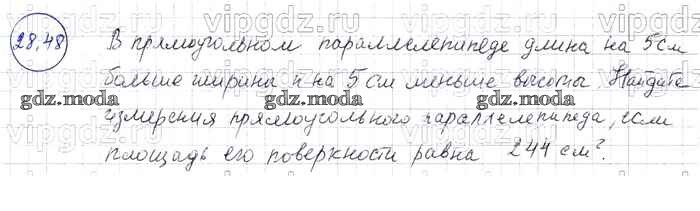 vipgdz.ru vipgdz.ru vipgdz.ru
28.48 В прямоугольном параллелепипеде длина на 5 см
больше ширины и на 5 см меньше высоты. Найдите
gdz.moda gdz.moda gdz.moda
измерения прямоугольного параллелепипеда, если
vipgdz.ru vipgdz.ru vipgdz.ru
площадь его поверхности равна 244 см².